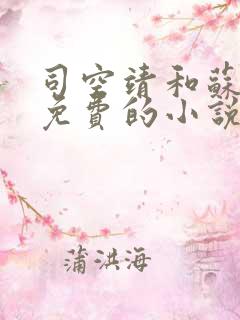 司空靖和蘇
免費的小說
蒲洪海